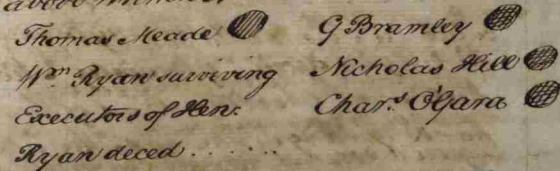 above
Thomas Meade
Wm Ryan surviving
Executors of Hen:
Ryan deced . . . . . .
G Bramley
Nicholas Hill
Chars. O'Gara